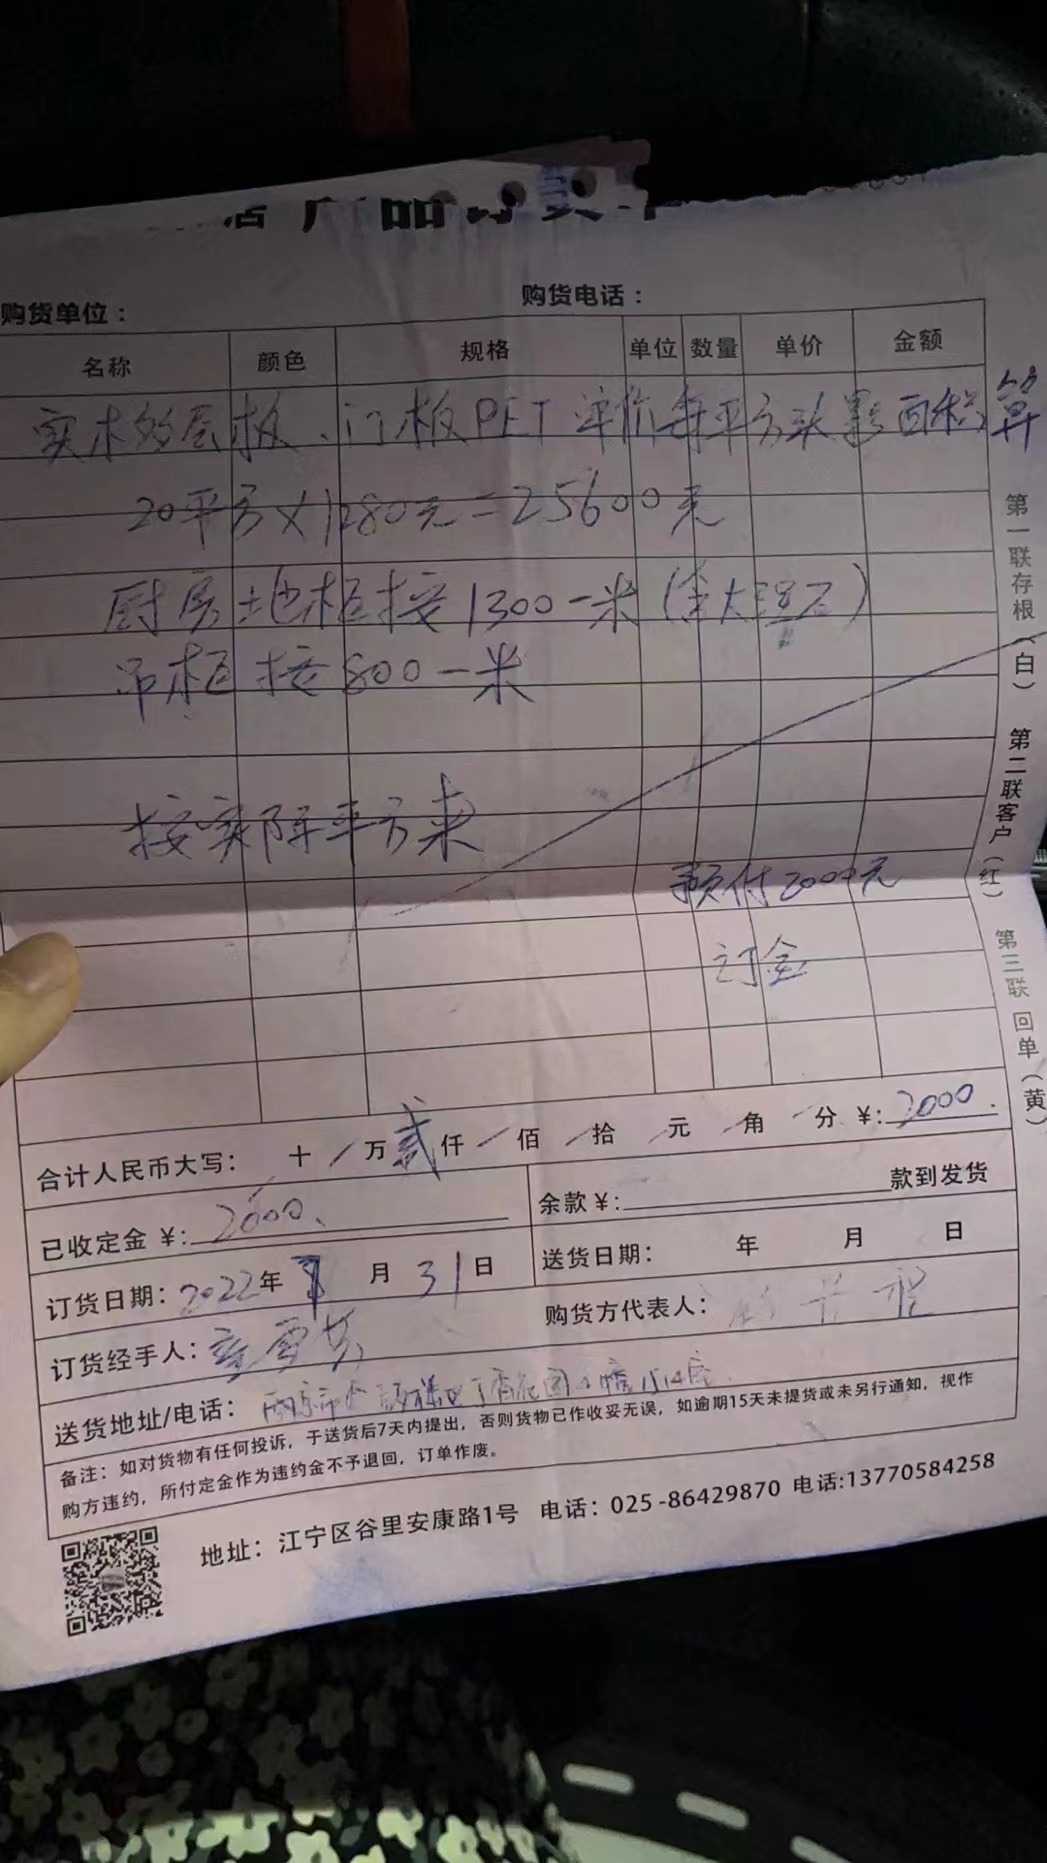 购货单位： 购货电话：
名称 颜色 规格 单位 数量 单价 金额
实木多层板、门板PET 单价每平方投影面积算
20平方×1280元=25600元
厨房地柜按1300一米（含大理石）
吊柜按800一米
按实际平方来
预付2000元
订金
合计人民币大写： 十 万 贰仟 佰 拾 元 角 分 ￥: 2000.
已收定金 ￥: 2000、 余款￥: 款到发货
订货日期: 2022年 月 31日 送货日期: 年 月 日
订货经手人: 购货方代表人:
送货地址/电话:
备注：如对货物有任何投诉，于送货后7天内提出，否则货物已作收妥无误，如逾期15天未提货或未另行通知，视作
购方违约，所付定金作为违约金不予退回，订单作废。
地址：江宁区谷里安康路1号 电话：025-86429870 电话:13770584258
第一联存根（白） 第二联客户（红） 第三联回单（黄）